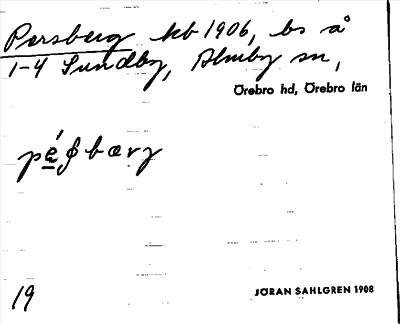 Persberg kb 1906, bs å
1-4 Sundby, Almby sn,
Örebro hd, Örebro län
19
JÖRAN SAHLGREN 1908